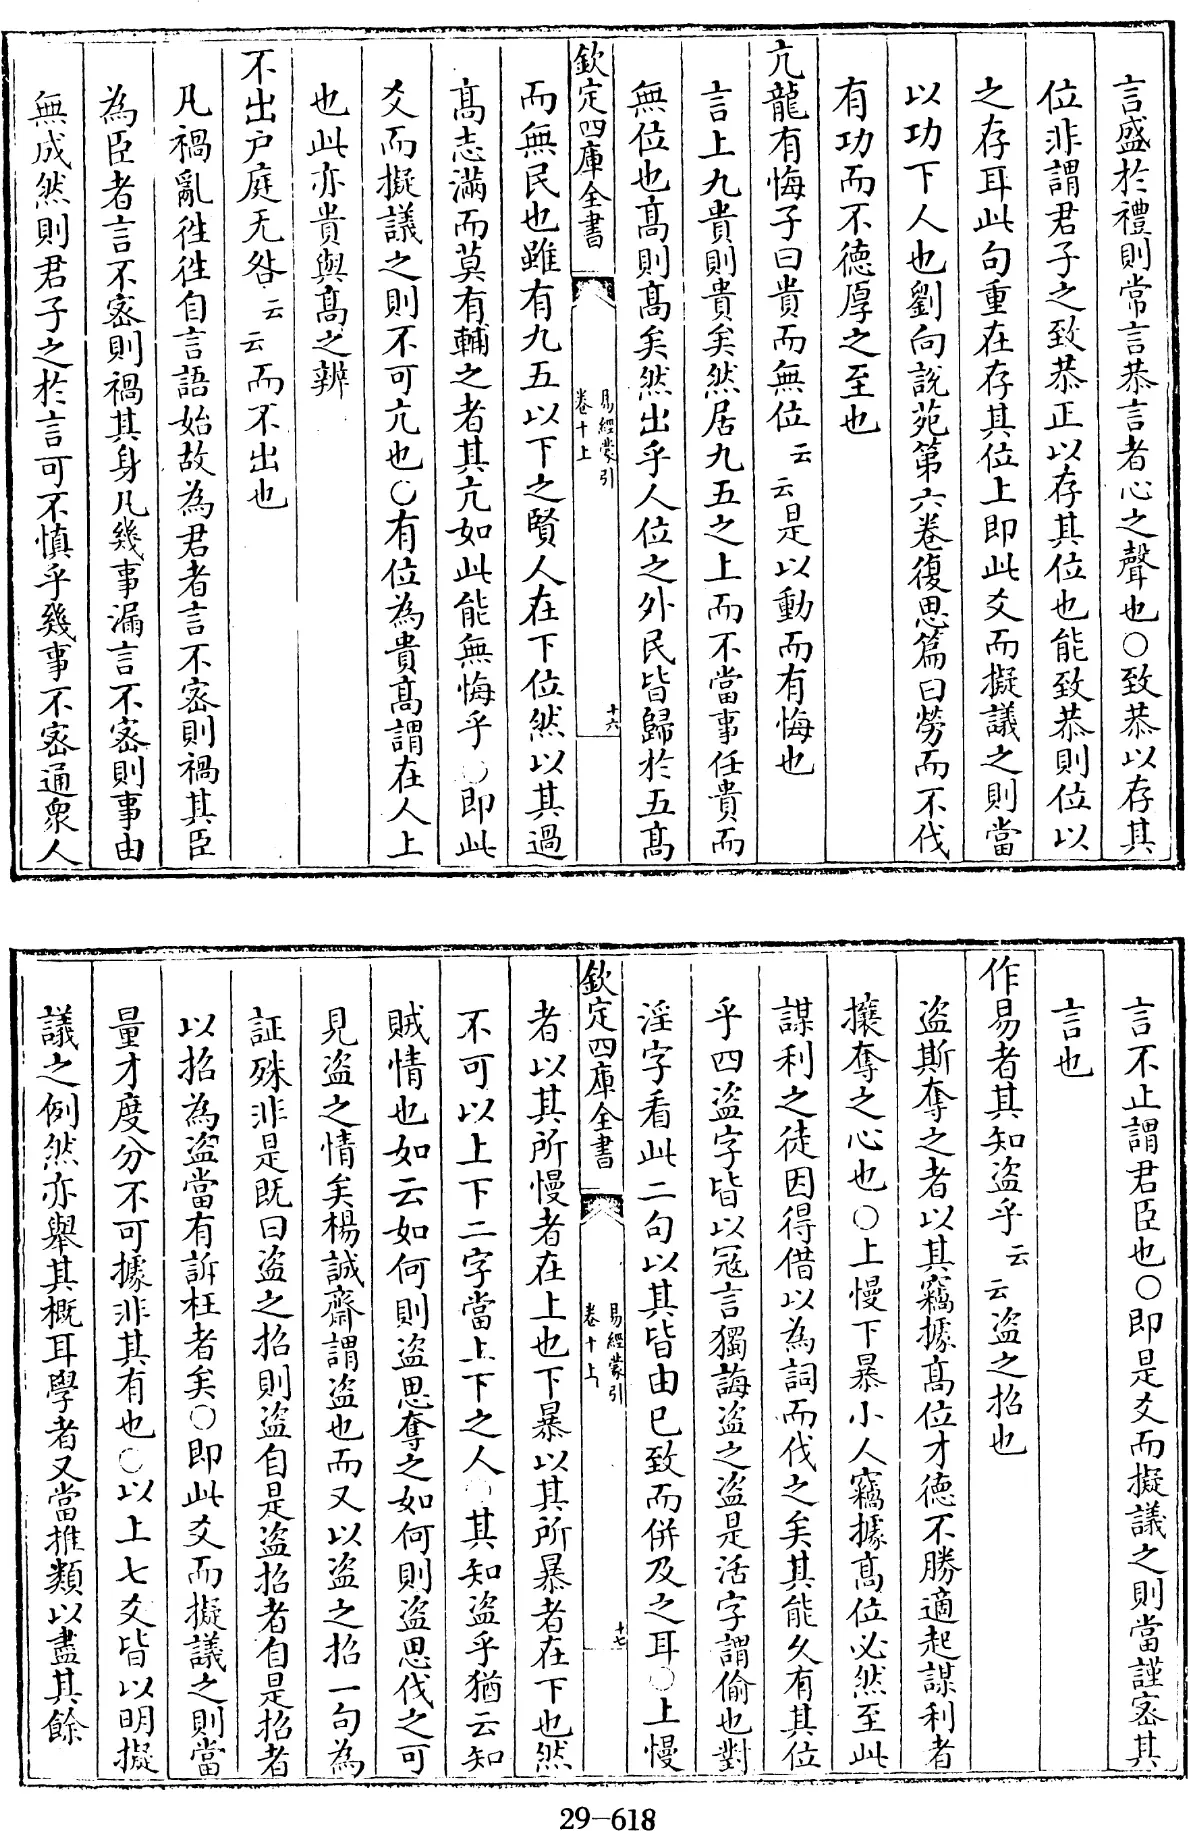 言盛於禮則常言恭言者心之聲也○致恭以存其
位非謂君子之致恭正以存其位也能致恭則位以
之存耳此句重在存其位上即此爻而擬議之則當
以功下人也劉向說苑第六卷復思篇曰勞而不伐
有功而不德厚之至也
亢龍有悔子曰貴而無位云云是以動而有悔也
言上九貴則貴矣然居九五之上而不當事任貴而
無位也高則高矣然出乎人位之外民皆歸於五高
欽定四庫全書
易經蒙引
卷十上
十六
而無民也雖有九五以下之賢人在下位然以其過
高志滿而莫有輔之者其亢如此能無悔乎○即此
爻而擬議之則不可亢也○有位為貴高謂在人上
也此亦貴與高之辨
不出户庭无咎云云而不出也
凡禍亂徃徃自言語始故為君者言不宻則禍其臣
為臣者言不宻則禍其身凡幾事漏言不宻則事由
無成然則君子之於言可不慎乎幾事不宻通衆人
言不止謂君臣也○即是爻而擬議之則當謹宻其
言也
作易者其知盜乎云云盜之招也
盜斯奪之者以其竊據高位才德不勝適起謀利者
攘奪之心也○上慢下暴小人竊據高位必然至此
謀利之徒因得借以為詞而伐之矣其能久有其位
乎四盜字皆以冦言獨誨盜之盜是活字謂偷也對
淫字看此二句以其皆由已致而併及之耳○上慢
欽定四庫全書
易經蒙引
卷十上
十七
者以其所慢者在上也下暴以其所暴者在下也然
不可以上下二字當上下之人○其知盜乎猶云知
賊情也如云如何則盜思奪之如何則盜思伐之可
見盜之情矣楊誠齋謂盜也而又以盜之招一句為
証殊非是既曰盜之招則盜自是盜招者自是招者
以招為盜當有訴枉者矣○即此爻而擬議之則當
量才度分不可據非其有也○以上七爻皆以明擬
議之例然亦舉其概耳學者又當推類以盡其餘
29-618